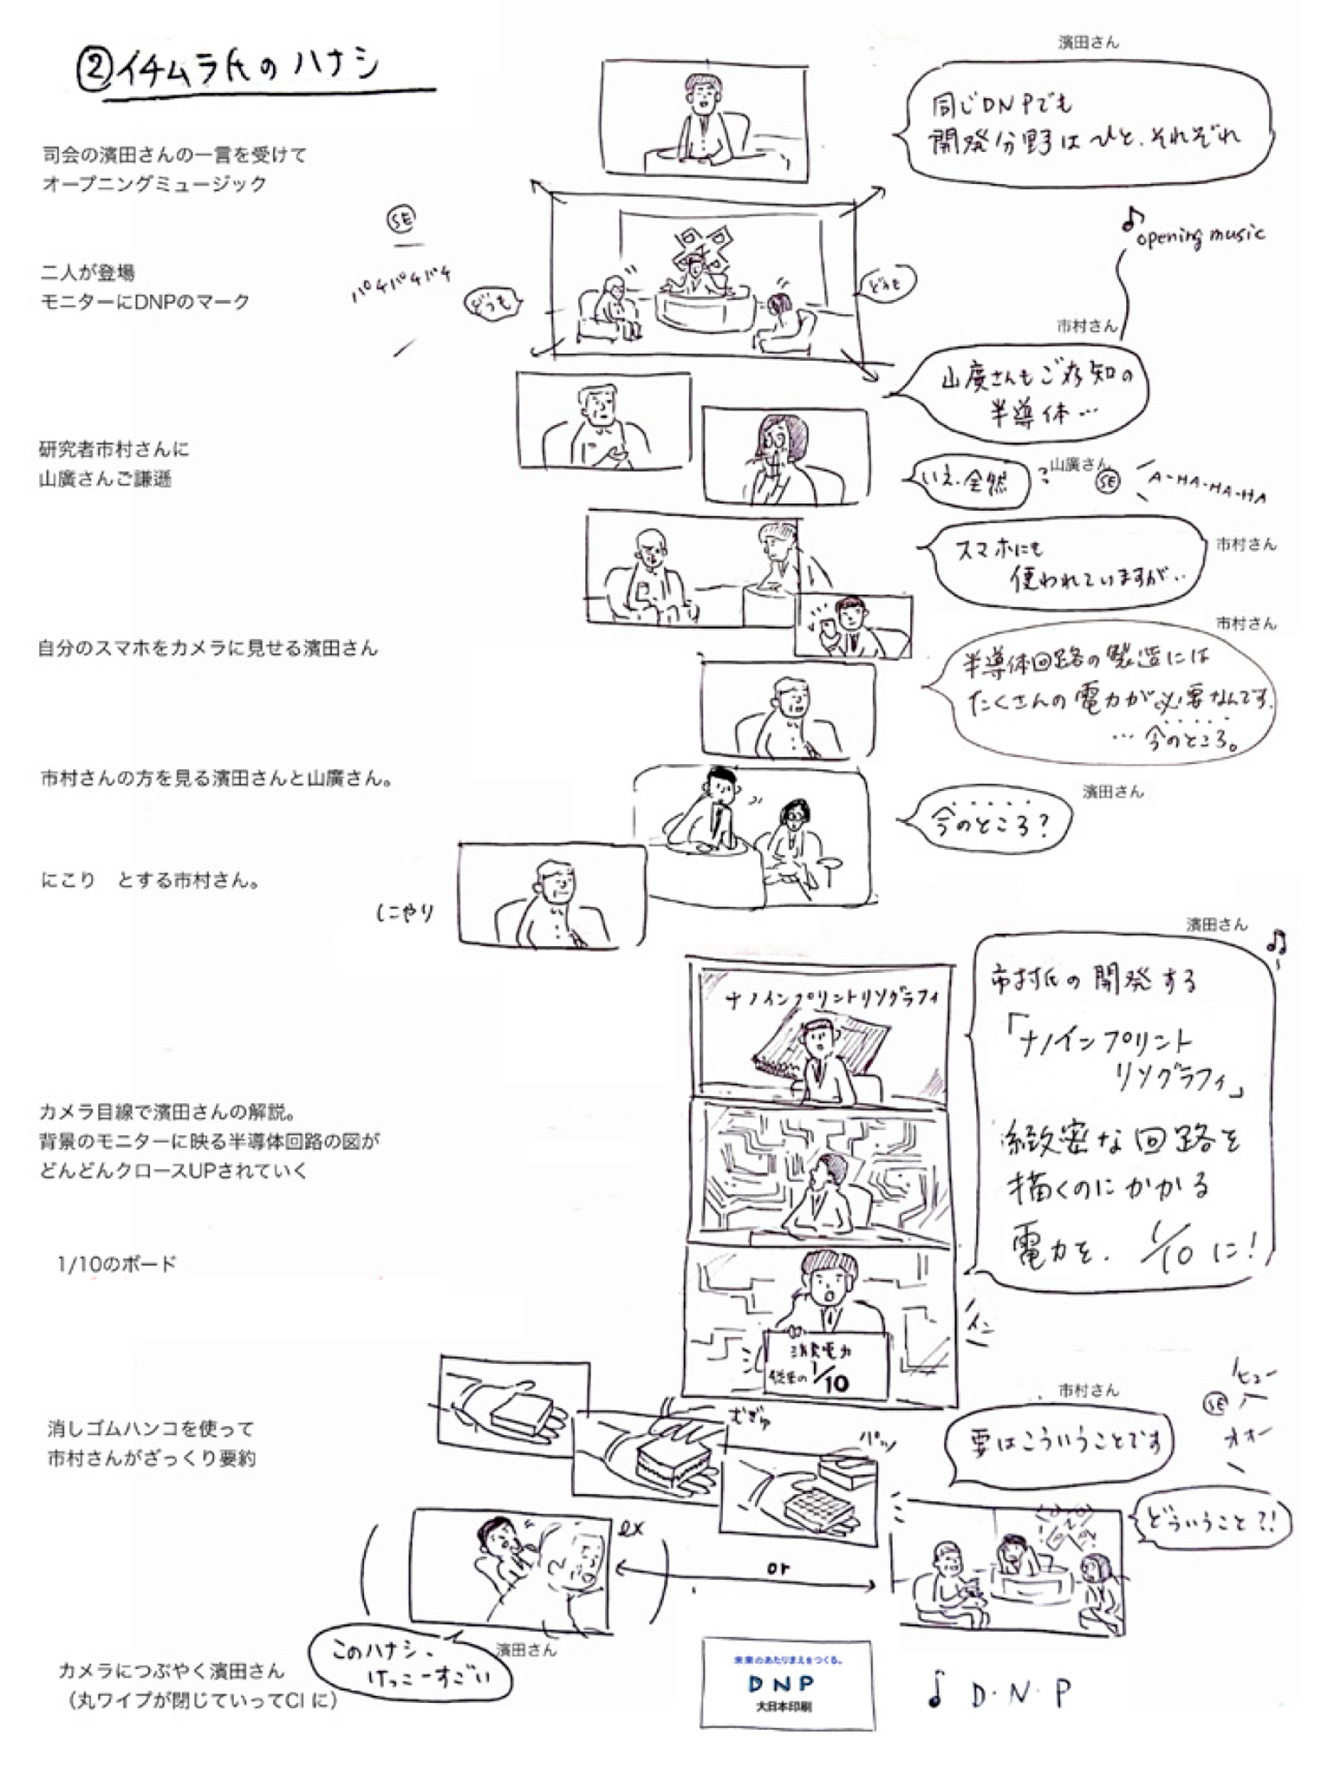 ②イチムラ氏のハナシ
濱田さん
同じDNPでも
開発分野はひと、それぞれ
司会の濱田さんの一言を受けて
オープニングミュージック
SE
パチパチパチ
どうも
どうも
♪opening music
二人が登場
モニターにDNPのマーク
市村さん
山廣さんもご存知の
半導体…
研究者市村さんに
山廣さんご謙遜
いえ、全然
山廣さん
SE
A-HA-HA-HA
スマホにも
使われていますが..
市村さん
自分のスマホをカメラに見せる濱田さん
市村さん
半導体回路の製造には
たくさんの電力が必要なんです.
…今のところ。
市村さんの方を見る濱田さんと山廣さん。
濱田さん
今のところ?
にこり　とする市村さん。
にやり
濱田さん
♫
市村氏の開発する
「ナノインプリント
リソグラフィ」
緻密な回路を
描くのにかかる
電力を、1/10に!
ナノインプリントリソグラフィ
カメラ目線で濱田さんの解説。
背景のモニターに映る半導体回路の図が
どんどんクロースUPされていく
1/10のボード
消費電力
従来の1/10
消しゴムハンコを使って
市村さんがざっくり要約
むぎゅ
パッ
市村さん
要はこういうことです
SE
ヒュー
オオー
どういうこと?!
ex
or
このハナシ、
けっこーすごい
濱田さん
カメラにつぶやく濱田さん
（丸ワイプが閉じていってCI に）
未来のあたりまえをつくる。
DNP
大日本印刷
♪ D・N・P